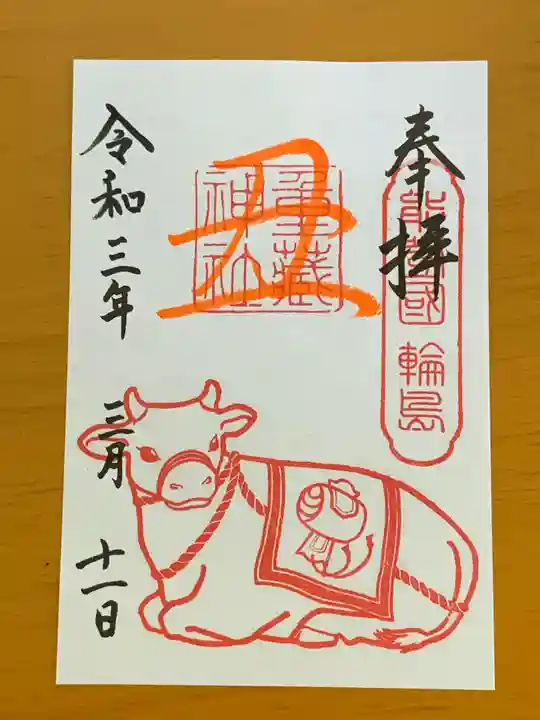 奉拝
能登國 輪島
丑
重蔵神社
令和三年 三月 十一日